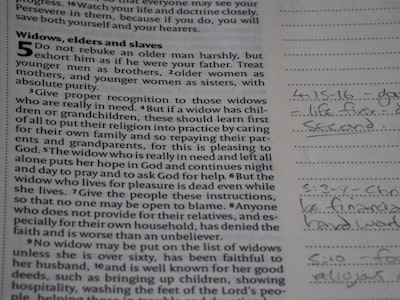 progress. 16Watch your life and doctrine closely.
Persevere in them, because if you do, you will
save both yourself and your hearers.
Widows, elders and slaves
5 Do not rebuke an older man harshly, but
exhort him as if he were your father. Treat
younger men as brothers, 2older women as
mothers, and younger women as sisters, with
absolute purity.
3Give proper recognition to those widows
who are really in need. 4But if a widow has chil-
dren or grandchildren, these should learn first
of all to put their religion into practice by caring
for their own family and so repaying their par-
ents and grandparents, for this is pleasing to
God. 5The widow who is really in need and left all
alone puts her hope in God and continues night
and day to pray and to ask God for help. 6But the
widow who lives for pleasure is dead even while
she lives. 7Give the people these instructions,
so that no one may be open to blame. 8Anyone
who does not provide for their relatives, and es-
pecially for their own household, has denied the
faith and is worse than an unbeliever.
9No widow may be put on the list of widows
unless she is over sixty, has been faithful to
her husband, 10and is well known for her good
deeds, such as bringing up children, showing
hospitality, washing the feet of the Lord's peo-
4:15-16 -
- life first -
second
5:3-7
be
hard
5:10 -